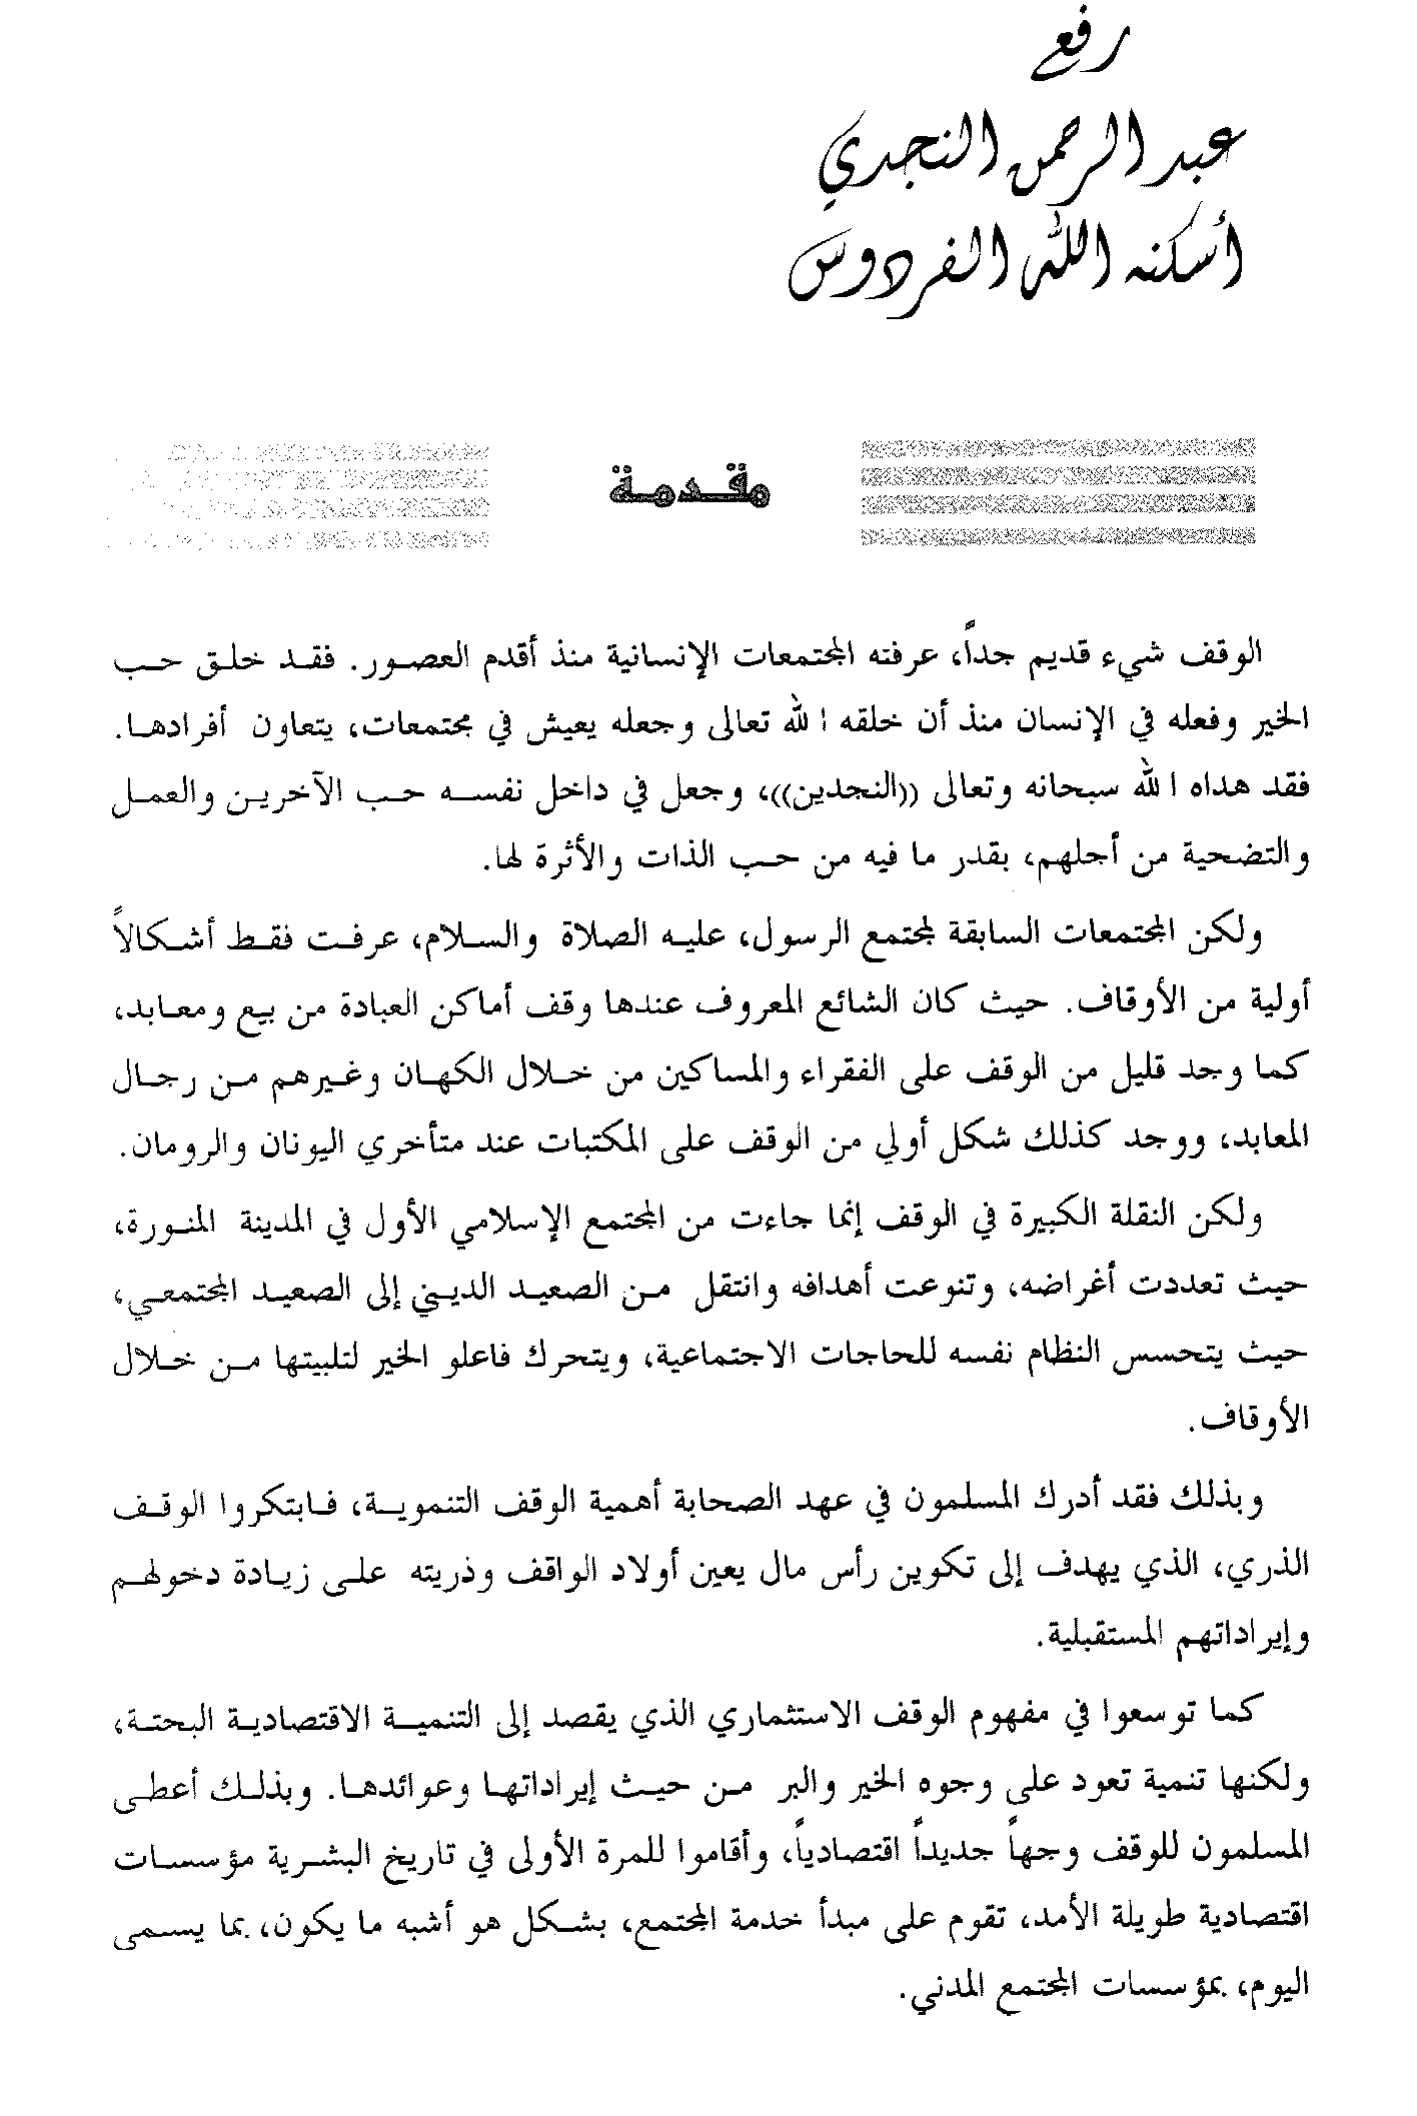 رفع
عبد الرحمن النجدي
أسكنه الله الفردوس
مقدمة
الوقف شيء قديم جداً، عرفته المجتمعات الإنسانية منذ أقدم العصور. فقد خلق حب
الخير وفعله في الإنسان منذ أن خلقه الله تعالى وجعله يعيش في مجتمعات، يتعاون أفرادها.
فقد هداه الله سبحانه وتعالى ((النجدين))، وجعل في داخل نفسه حب الآخرين والعمل
والتضحية من أجلهم، بقدر ما فيه من حب الذات والأثرة لها.
ولكن المجتمعات السابقة لمجتمع الرسول، عليه الصلاة والسلام، عرفت فقط أشكالاً
أولية من الأوقاف. حيث كان الشائع المعروف عندها وقف أماكن العبادة من بيع ومعابد،
كما وجد قليل من الوقف على الفقراء والمساكين من خلال الكهان وغيرهم من رجال
المعابد، ووجد كذلك شكل أولي من الوقف على المكتبات عند متأخري اليونان والرومان.
ولكن النقلة الكبيرة في الوقف إنما جاءت من المجتمع الإسلامي الأول في المدينة المنورة،
حيث تعددت أغراضه، وتنوعت أهدافه وانتقل من الصعيد الديني إلى الصعيد المجتمعي،
حيث يتحسس النظام نفسه للحاجات الاجتماعية، ويتحرك فاعلو الخير لتلبيتها من خلال
الأوقاف.
وبذلك فقد أدرك المسلمون في عهد الصحابة أهمية الوقف التنموية، فابتكروا الوقف
الذري، الذي يهدف إلى تكوين رأس مال يعين أولاد الواقف وذريته على زيادة دخولهم
وإيراداتهم المستقبلية.
كما توسعوا في مفهوم الوقف الاستثماري الذي يقصد إلى التنمية الاقتصادية البحتة،
ولكنها تنمية تعود على وجوه الخير والبر من حيث إيراداتها وعوائدها. وبذلك أعطى
المسلمون للوقف وجهاً جديداً اقتصادياً، وأقاموا للمرة الأولى في تاريخ البشرية مؤسسات
اقتصادية طويلة الأمد، تقوم على مبدأ خدمة المجتمع، بشكل هو أشبه ما يكون، بما يسمى
اليوم، بمؤسسات المجتمع المدني.